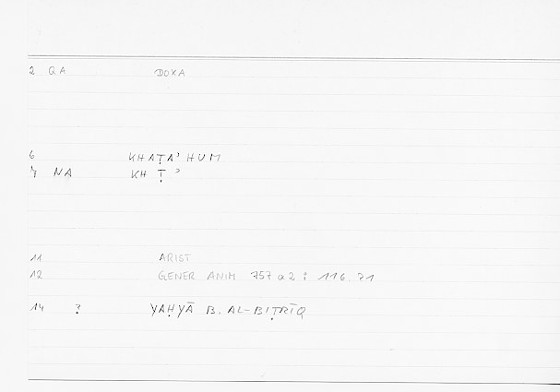 2 GA DOXA
6 KHAṬAʾHUM
7 NA KHṬʾ
11 ARIST
12 GENER ANIM 757 a 2 : 116.71
14 ? YAḤYĀ B. AL-BIṬRĪQ